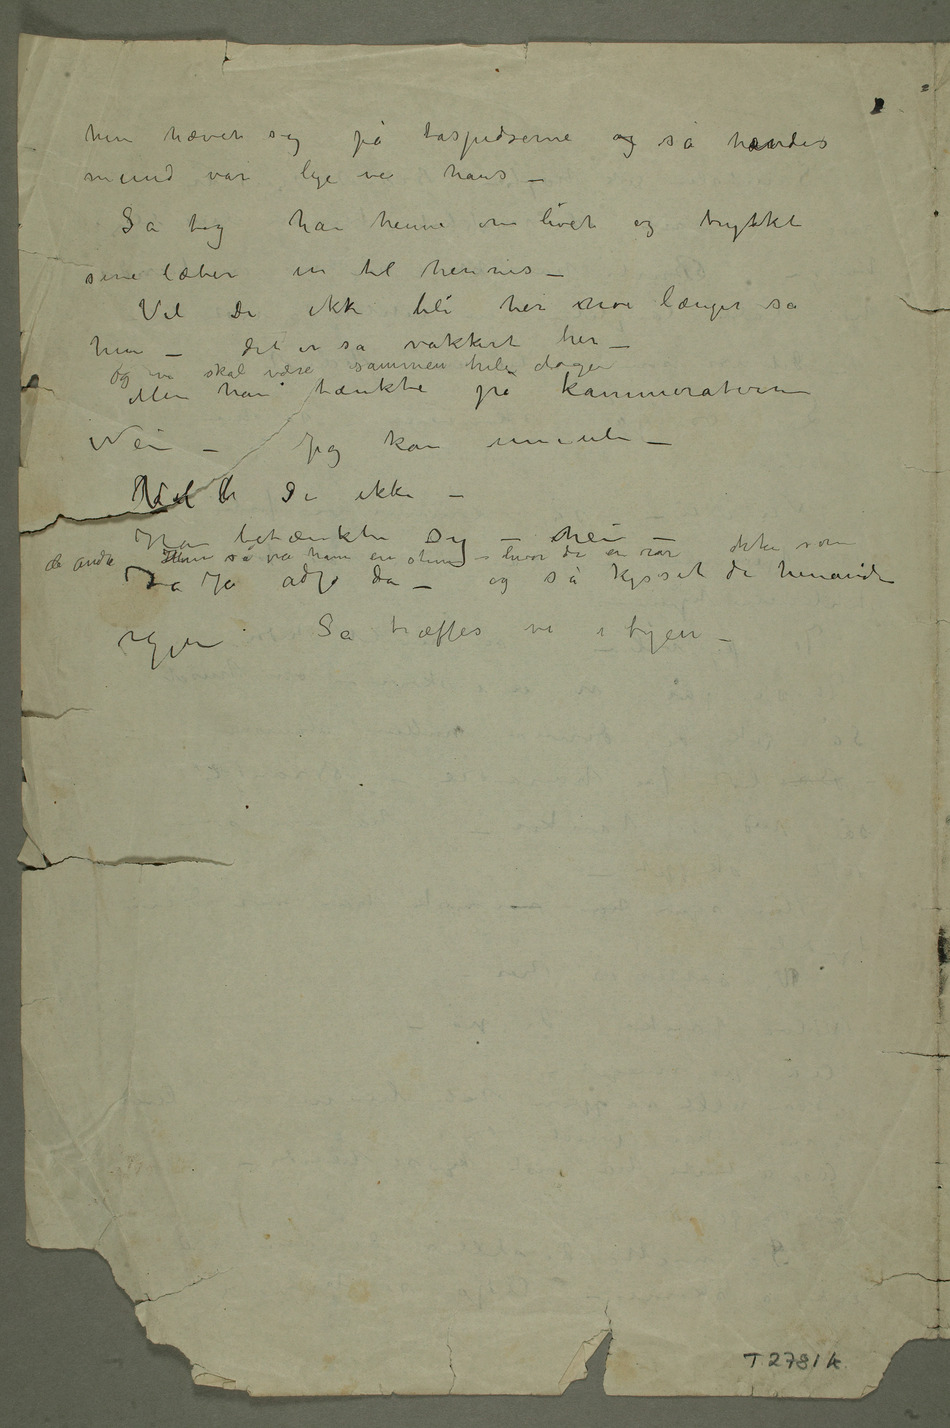 hun hævet sig på tåspidserne og så hændes
mund var lige ve hans –
Så tog han henne om livet og trykkt
sine læber in til hennes –
Vil De ikke bli her noe længer sa
hun – det er så vakkert her –
Og vi skal være sammen hele dagen
Men han tænkte på kammeraterne
Nei – Jeg kan umulig –
Vil De ikke –
Han betænkte sig – nei –
de andre Hun så på ham en stund – hvor de er rar ikke som
Ja Ja adjø da – og så kysset de hinanden
igjen Så træffes vi i byen –
T 2781k